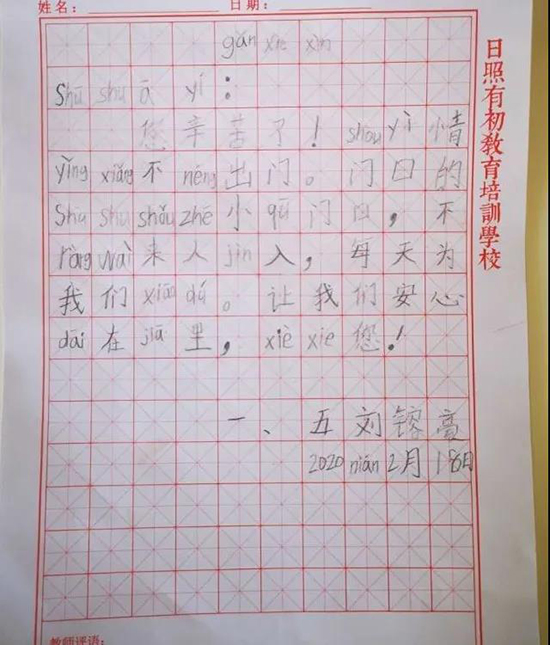 姓名： 日期：
gǎn xiè xìn
Shū shu ā yí：
您辛苦了！shòu yì 情
yǐng xiǎng 不 néng 出门。门口的
Shū shu shǒu zhē 小 qū 门口，不
ràng wài 来人 jìn 入，每天为
我们 xiāo dú。让我们安心
dāi 在 jiā 里，xiè xie 您！
一、五 刘镕亮
2020 nián 2月18日
教师评语：
日照有初教育培訓學校